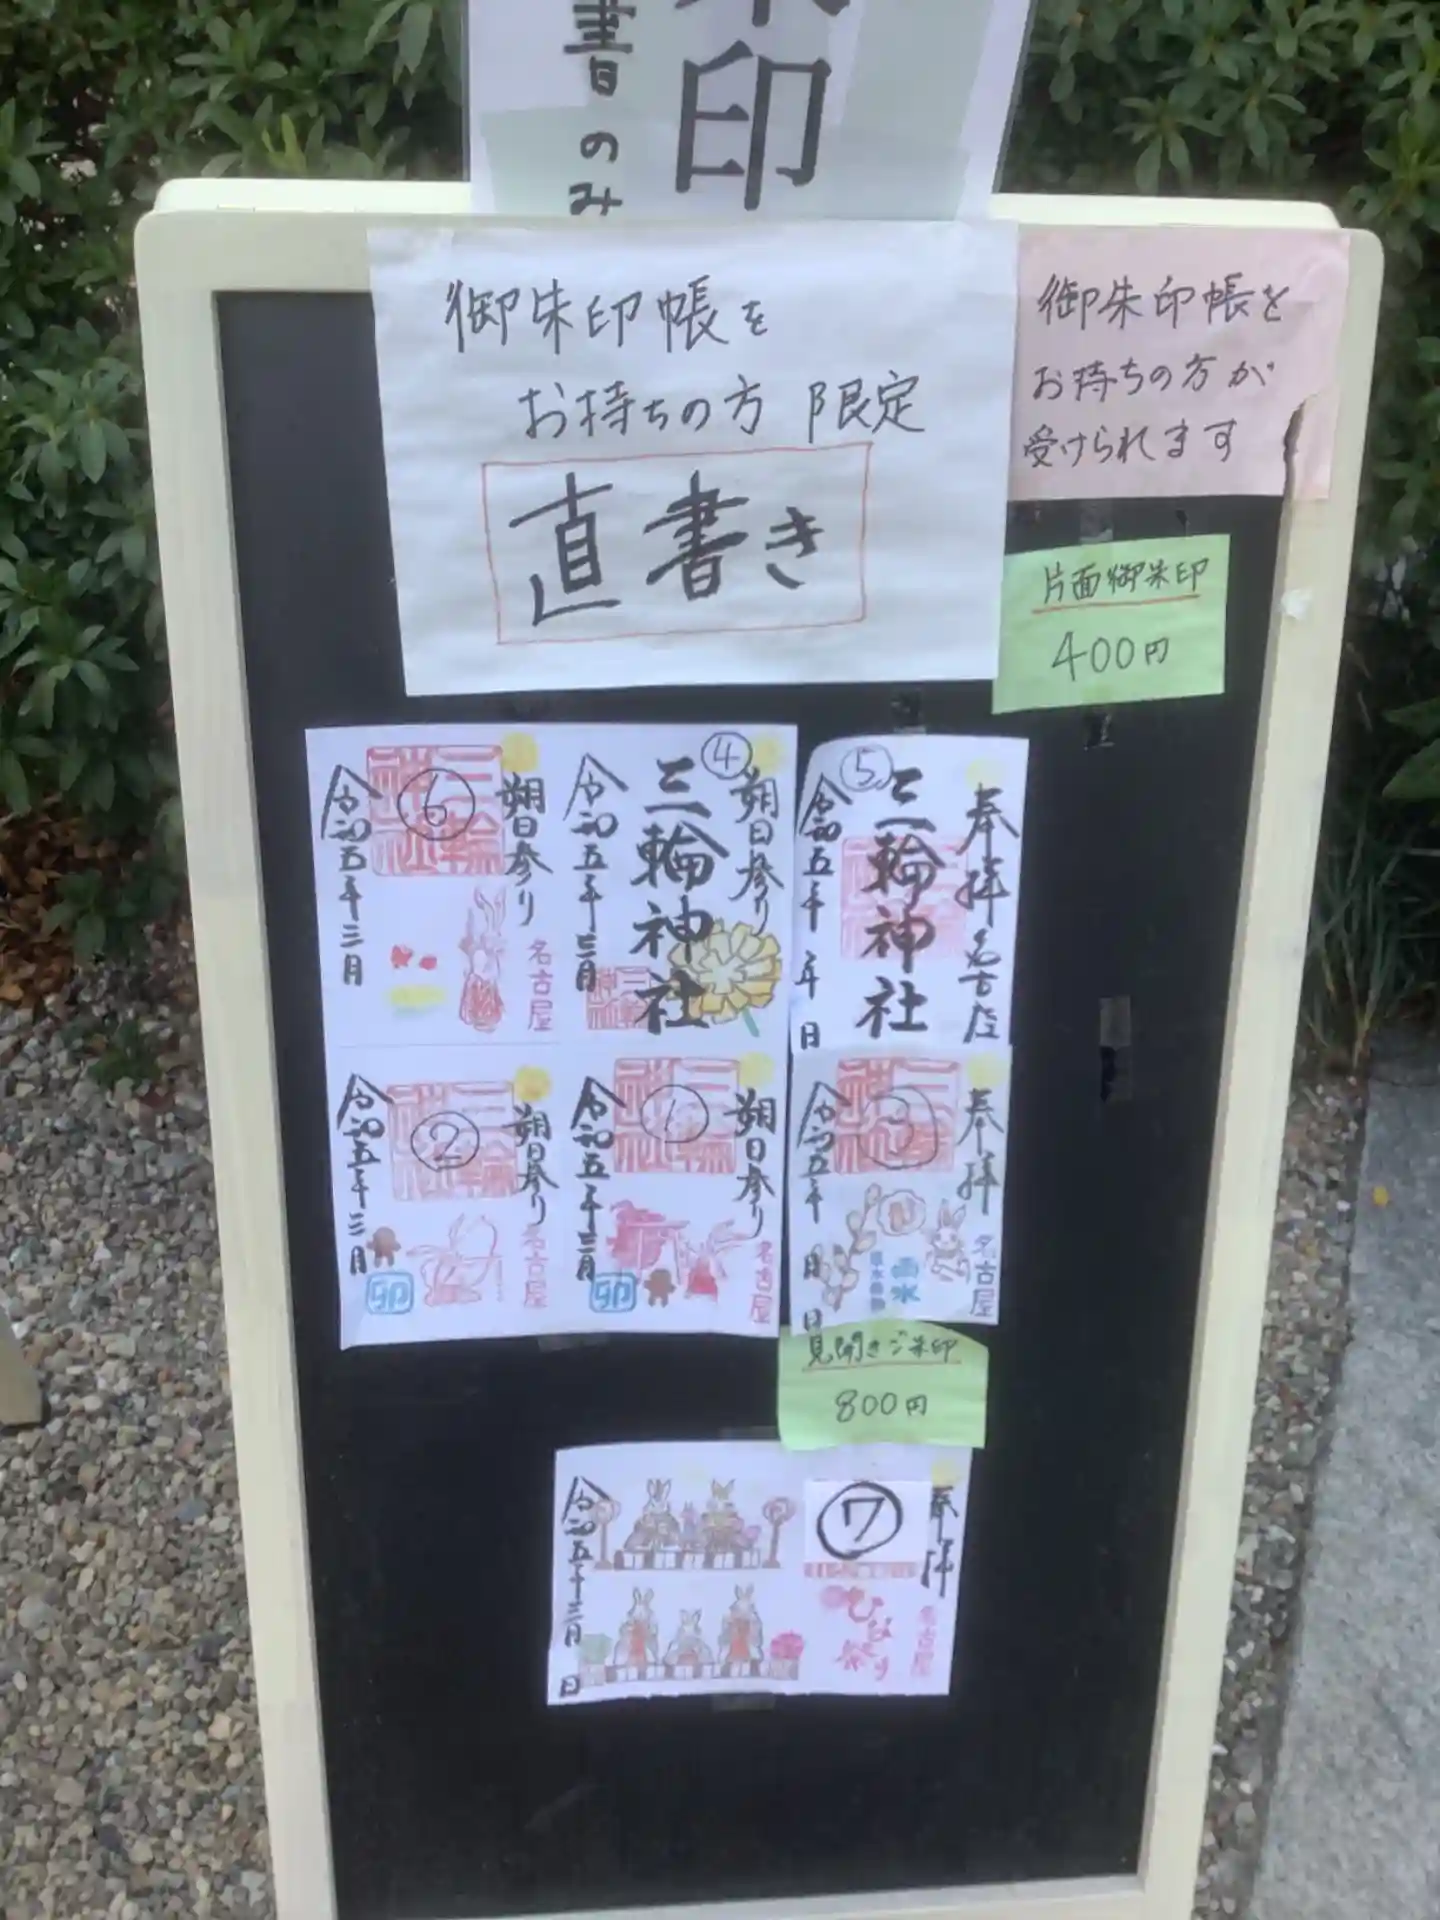 印
書のみ
御朱印帳を
お持ちの方 限定
直書き
御朱印帳を
お持ちの方が
受けられます
片面御朱印
400円
⑥
朔日参り
令和五年三月
名古屋
④
朔日参り
三輪神社
令和五年三月
⑤
奉拝
名古屋
三輪神社
令和五年 年 日
②
朔日参り
令和五年三月
名古屋
卯
①
朔日参り
令和五年三月
名古屋
卯
奉拝
令和五年 日
雨水
名古屋
見開きご朱印
800円
⑦
奉拝
名古屋
ひな祭り
令和五年三月 日